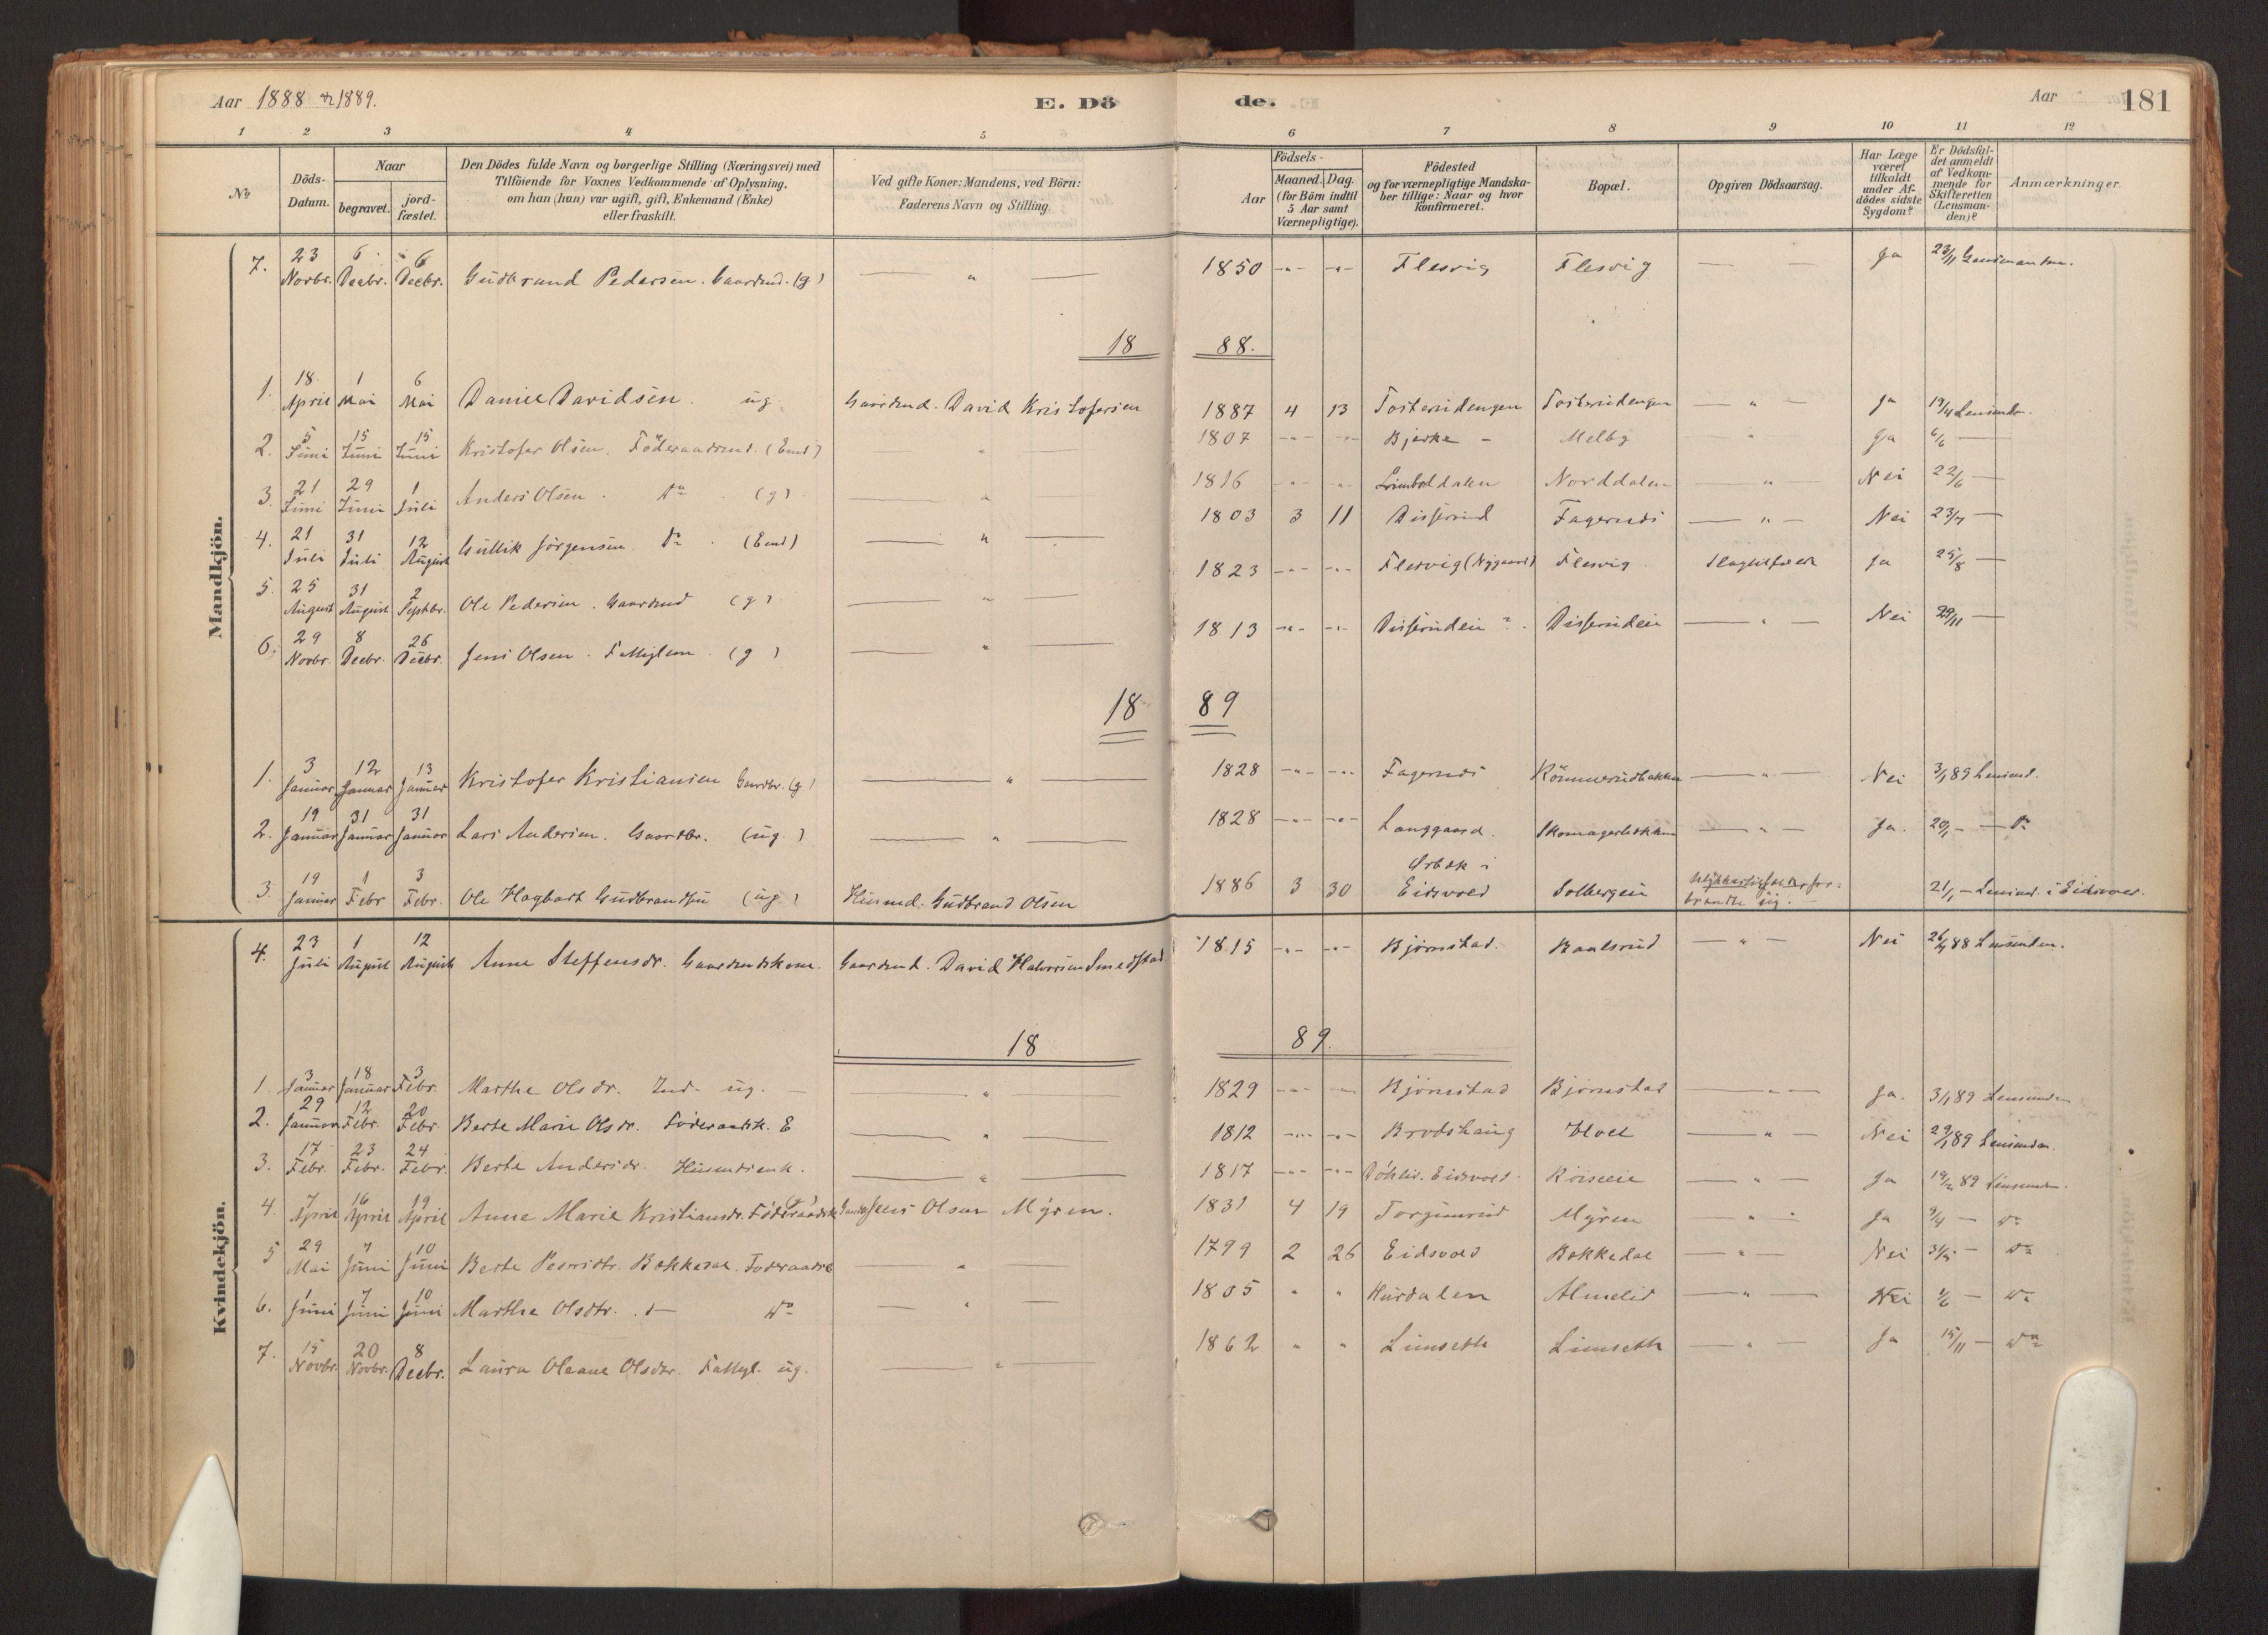 Aar 1888 & 1889. E. Dö de. Aar 181
1 2 3 4 5 6 7 8 9 10 11 12
No
Döds-Datum.
Naar
begravet.
jord-fæstet.
Den Dödes fulde Navn og borgerlige Stilling (Næringsvei) med
Tilföiende for Voxnes Vedkommende af Oplysning,
om han (hun) var ugift, gift, Enkemand (Enke)
eller fraskilt.
Ved gifte Koner: Mandens, ved Börn:
Faderens Navn og Stilling.
Födsels-
Aar
Maaned. Dag.
(for Börn indtil
5 Aar samt
Værnepligtige).
Födested
og for værnepligtige Mandska-
ber tillige: Naar og hvor
konfirmeret.
Bopæl.
Opgiven Dödsaarsag.
Har Læge
været
tilkaldt
under Af-
dödes sidste
Sygdom?
Er Dödsfal-
det anmeldt
af Vedkom-
mende for
Skifteretten
(Lensman-
den)?
Anmærkninger.
Mandkjön.
7. 23 Novbr. 6 Decbr. 6 Decbr. Gudbrand Pedersen. Gaardmd. (g) — " — 1850 -"- -"- Flesvig Flesvig — — Ja 23/11
18 88.
1. 18 April 1 Mai 6 Mai Daniel Davidsen. ug. Gaardmd. David Kristofersen 1887 4 13 Tosterudengen Tosterudengen — " — Ja 19/4 Lensmdn.
2. 5 Juni 15 Juni 15 Juni Kristofer Olsen. Föderaadsmd. (Emd) — " — 1807 -"- -"- Bjerke - Melby — " Ja 6/6 —
3. 21 Juni 29 Juni 1 Juli Anders Olsen. do (g). — " — 1816 -"- -"- Norddalen — " — Nei 22/6 —
4. 21 Juli 31 Juli 12 August Gullik Jörgensen do. (Emd) — " — 1803 3 11 Disserud Fagernes — " — Nei 23/7 —
5. 25 August 31 August 2 Septbr. Ole Pedersen. Gaardmd (g). — " — 1823 -"- -"- Flesvig (Nygaard) Flesvig Ja 25/8 —
6. 29 Novbr. 8 Decbr. 26 Decbr. Jens Olsen. Fattiglem. (g) — " — 1813 -"- -"- Disseruden ? Disseruden — " — Nei 29/11 —
18 89
1. 3 Januar 12 Januar 13 Januar Kristofer Kristiansen Gaardbr. (g) — " — 1828 -"- -"- Fagernes Römmerudbakken — " — Nei 3/1 89 Lensmd.
2. 19 Januar 31 Januar 31 Januar Lars Andersen. Gaardbr. (ug.) — " — 1828 -"- -"- Langgaard. Skomagerbakken — " — Ja. 20/1 — do
3. 19 Januar 1 Febr 3 Febr. Ole Hagbart Gudbrandsen (ug) Husmd. Gudbrand Olsen 1886 3 30 Ørbæk i Eidsvold Solbergeie Ulykkestilfælde for-
brændte sig. 21/1 — Lensmd. i Eidsvold.
Kvindekjön.
4. 23 Juli 1 August 12 August Anne Steffensdr. Gaardmdskone. Gaardmd. David Halvorsen Smedstad 1815 -"- -"- Björnstad. Baalsrud — " — Nei 26/7 88 Lensmdn.
18 89.
1. 3 Januar 18 Januar 3 Febr. Marthe Olsdr. Ind- ug. — " — 1829 -"- — Björnstad Björnstad — " — Ja. 3/1 89 Lensmdn
2. 29 Januar 12 Febr. 20 Febr. Berte Marie Olsdr. Föderaadsk. E — " — 1812 -"- -"- Brodshaug Hoel — " — Nei 29/1 89 Lensmdn.
3. 17 Febr. 23 Febr. 24 Febr. Berte Andersdr. Husmdsenk. — " — 1817 -"- -"- Eidsvold — " — Ja 19/2 89 Lensmdn.
4. 7 April 16 April 19 April Anne Marie Kristiansdr. Föderaadsk (g) Jens Olsen Myren. 1831 4 19 Torgunrud Myren — " — Ja 9/4 — do
5 29 Mai 7 Juni 10 Juni Berte Pedersdtr. Bakkedal. Föderaadsk — " — 1799 2 26 Eidsvold Bakkedal — " — Nei 31/5 — do
6. 1 Juni 7 Juni 10 Juni Marthe Olsdtr. — do — " — 1805 " " Hurdalen Almelid — " — Nei 4/6 — do
7. 15 Novbr. 20 Novbr. 8 Decbr. Laura Oleane Olsdtr. Fattigl. ug. — " 1862 " " Limseth Limseth — " — Ja 15/11 — do